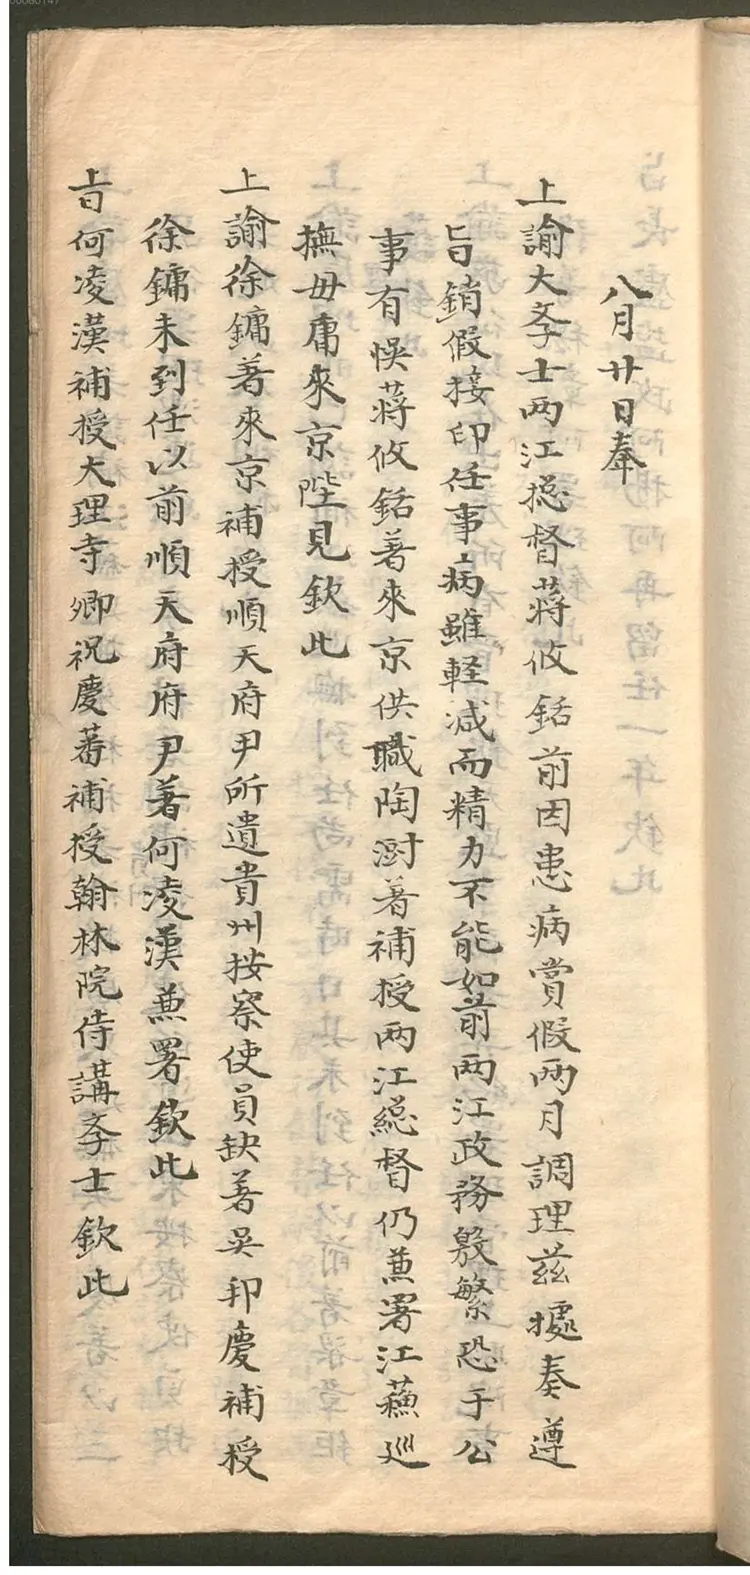 八月廿日奉
上諭大斈士两江揔督蔣攸銛前因患病賞假两月調理茲據奏遵
旨銷假接印任事病雖軽減而精力不能如前两江政務殷繁恐于公
事有悮蔣攸銛著來京供職陶澍著補授两江總督仍兼署江蘓巡
撫毋庸來京陛見欽此
上諭徐鏞著來京補授順天府尹所遺貴州按察使員缺著吳邦慶補授
徐鏞未到任以前順天府府尹著何凌漢兼署欽此
上旨何凌漢補授大理寺卿祝慶蕃補授翰林院侍講斈士欽此